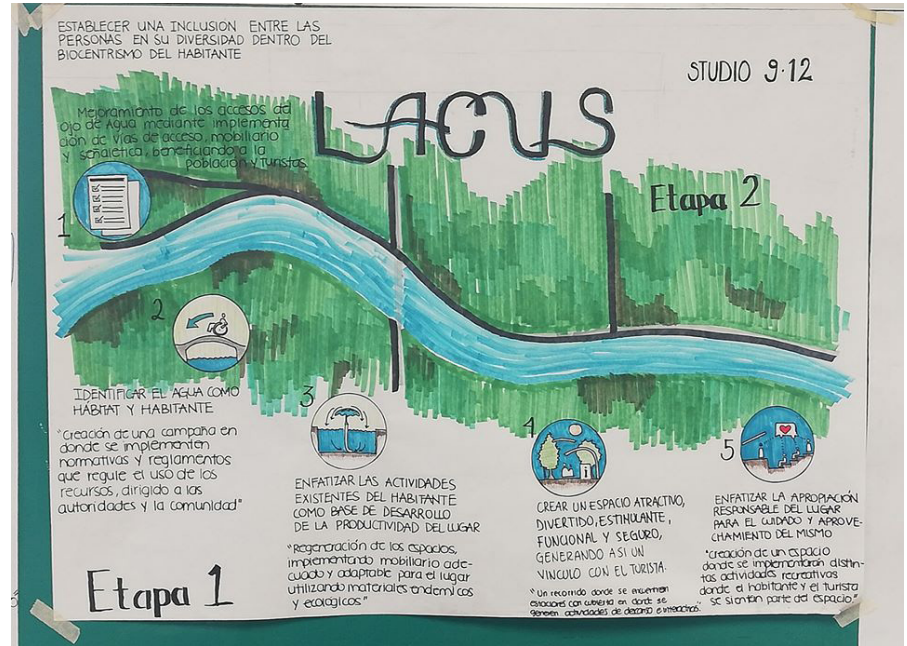 ESTABLECER UNA INCLUSION ENTRE LAS
PERSONAS EN SU DIVERSIDAD DENTRO DEL
BIOCENTRISMO DEL HABITANTE
STUDIO 9·12
LACUS
Mejoramiento de los accesos del
ojo de Agua mediante implementa
ción de vías de acceso, mobiliario
y señaletica, beneficiando a la
población y turistas.
1
Etapa 2
2
IDENTIFICAR EL AGUA COMO
HÁBITAT Y HABITANTE
"Creación de una campaña en
donde se implementen
normativas y reglamentos
que regule el uso de los
recursos, dirigido a las
autoridades y la comunidad"
Etapa 1
3
ENFATIZAR LAS ACTIVIDADES
EXISTENTES DEL HABITANTE
COMO BASE DE DESARROLLO
DE LA PRODUCTIVIDAD DEL LUGAR
"Regeneración de los espacios,
implementando mobiliario ade-
cuado y adaptable para el lugar
utilizando materiales endemicos
y ecologicos"
4
CREAR UN ESPACIO ATRACTIVO,
DIVERTIDO, ESTIMULANTE,
FUNCIONAL Y SEGURO,
GENERANDO ASI UN
VINCULO CON EL TURISTA.
"Un recorrido donde se encuentren
estaciones con cubierta en donde se
generen actividades de descanso e interactivas."
5
ENFATIZAR LA APROPIACIÓN
RESPONSABLE DEL LUGAR
PARA EL CUIDADO Y APROVE-
CHAMIENTO DEL MISMO
"creación de un espacio
donde se implementarán distin-
tas actividades recreativas
donde el habitante y el turista
se sientan parte del espacio."